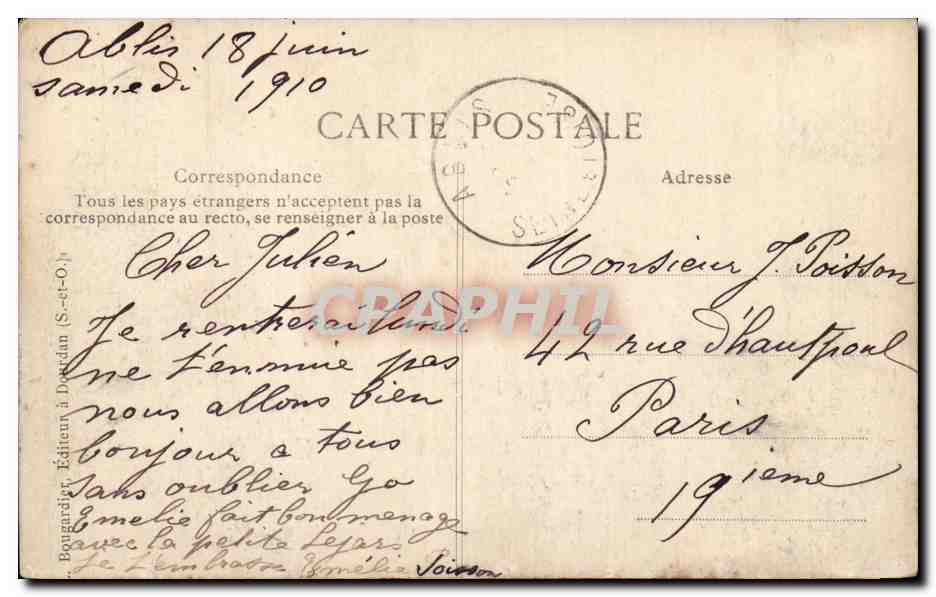 Ablis 18 juin
samedi 1910
CARTE POSTALE
ABLIS
SEINE
Correspondance
Tous les pays étrangers n'acceptent pas la
correspondance au recto, se renseigner à la poste
Adresse
Cher Julien
Je rentrerai lundi
ne t'ennuie pas
nous allons bien
bonjour a tous
sans oublier Go
Emelie fait bon menage
avec la petite Lejars
Je t'embrasse Emélie Poisson
Monsieur J. Poisson
42 rue d'hautpoul
Paris
19ieme
Bougardier, Éditeur à Dourdan (S.-et-O.)
CRAPHIL